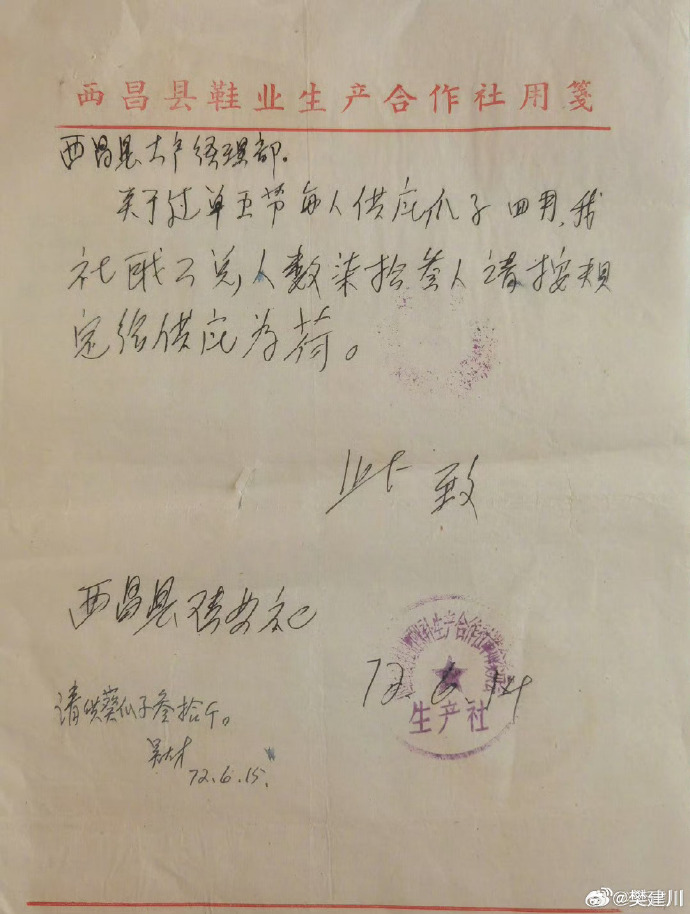 西昌县鞋业生产合作社用笺
西昌县土产经理部.
关于过单五节每人供应瓜子四两,我
社职工总人数柒拾叁人请按规
定给供应为荷。
此致
西昌县
72.6.14
生产合作社
生产社
请供葵瓜子叁拾斤。
72.6.15.
@樊建川